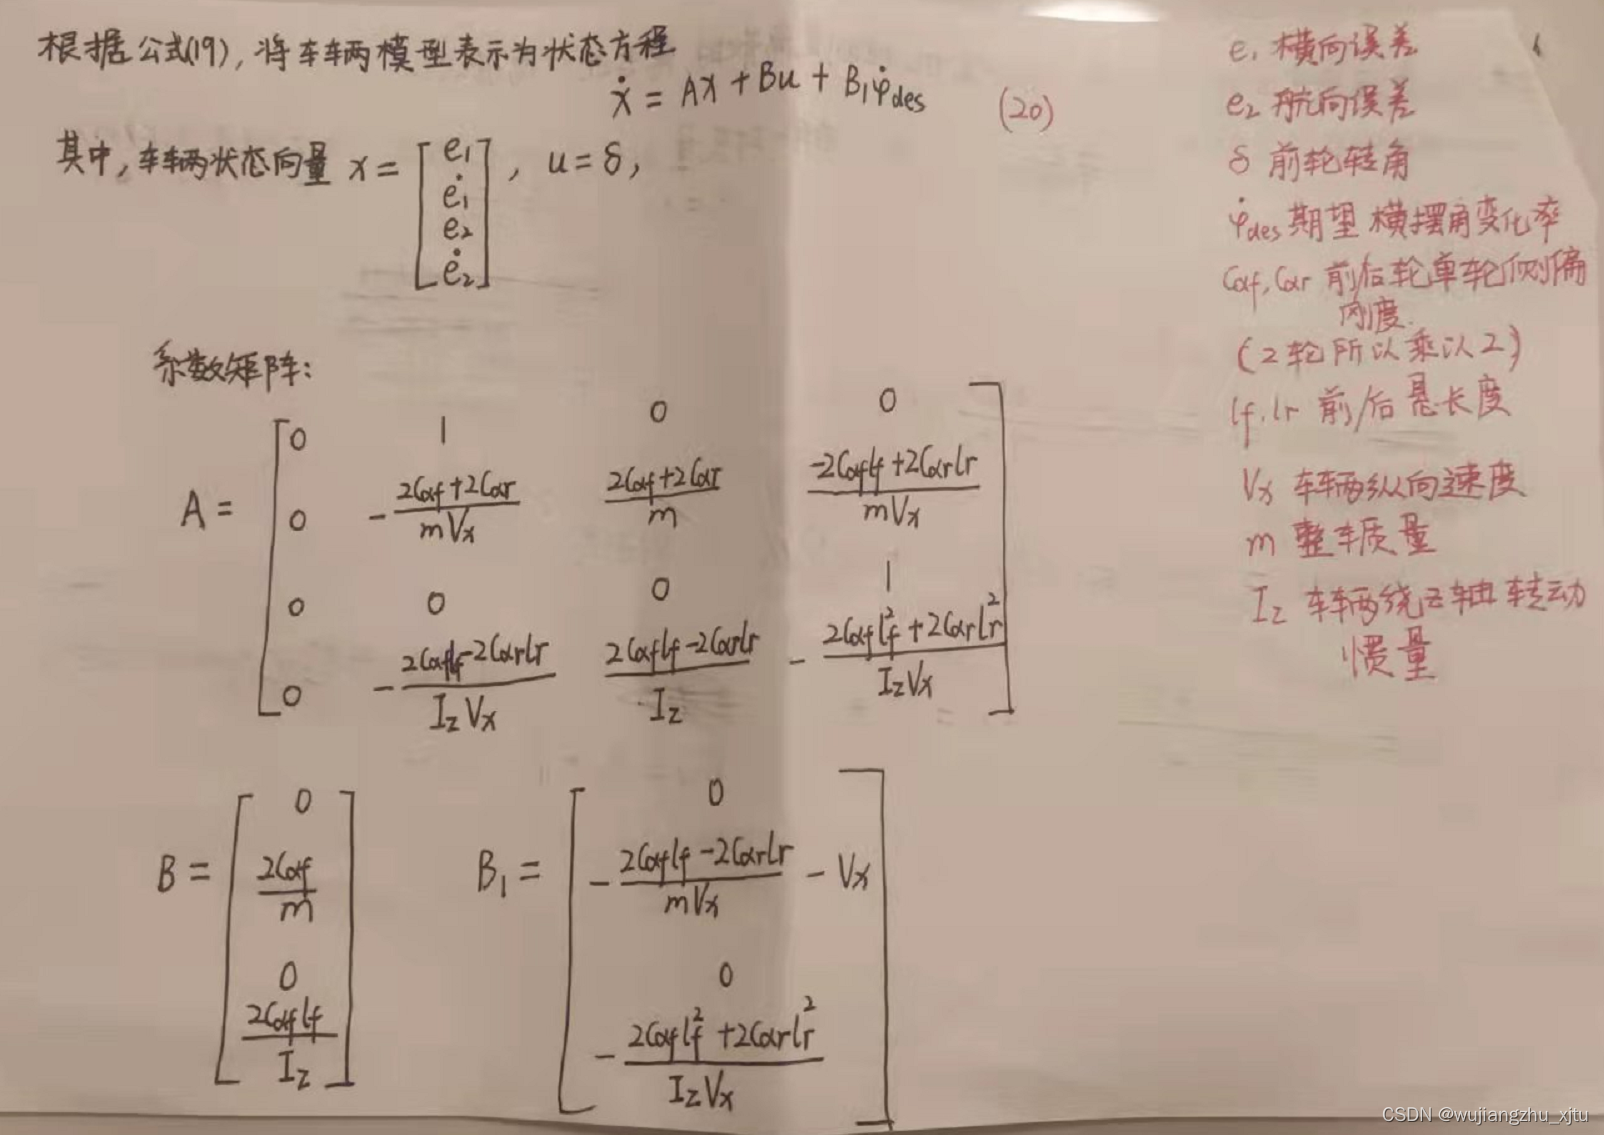 根据公式(19), 将车辆模型表示为状态方程
ẋ = Ax + Bu + B₁φ̇des (20)
其中, 车辆状态向量 x = [e₁ ė₁ e₂ ė₂], u = δ,
系数矩阵:
A = [0 1 0 0
0 -(2Cαf+2Cαr)/(mVx) (2Cαf+2Cαr)/m (-2Cαflf+2Cαrlr)/(mVx)
0 0 0 1
0 -(2Cαflf-2Cαrlr)/(IzVx) (2Cαflf-2Cαrlr)/Iz -(2Cαflf²+2Cαrlr²)/(IzVx)]
B = [0
2Cαf/m
0
2Cαflf/Iz]
B₁ = [0
-(2Cαflf-2Cαrlr)/(mVx) - Vx
0
-(2Cαflf²+2Cαrlr²)/(IzVx)]
e₁ 横向误差
e₂ 航向误差
δ 前轮转角
φ̇des 期望横摆角变化率
Cαf, Cαr 前后轮单轮侧偏
刚度.
(2轮所以乘以2)
lf, lr 前/后悬长度
Vx 车辆纵向速度
m 整车质量
Iz 车辆绕z轴转动
惯量
CSDN @wujiangzhu_xjtu